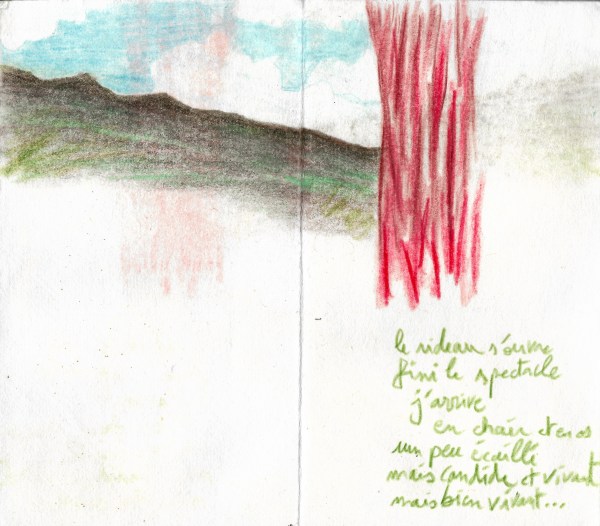 le rideau s'ouvre
fini le spectacle
j'arrive
en chair et en os
un peu écaillé
mais candide et vivant
mais bien vivant...